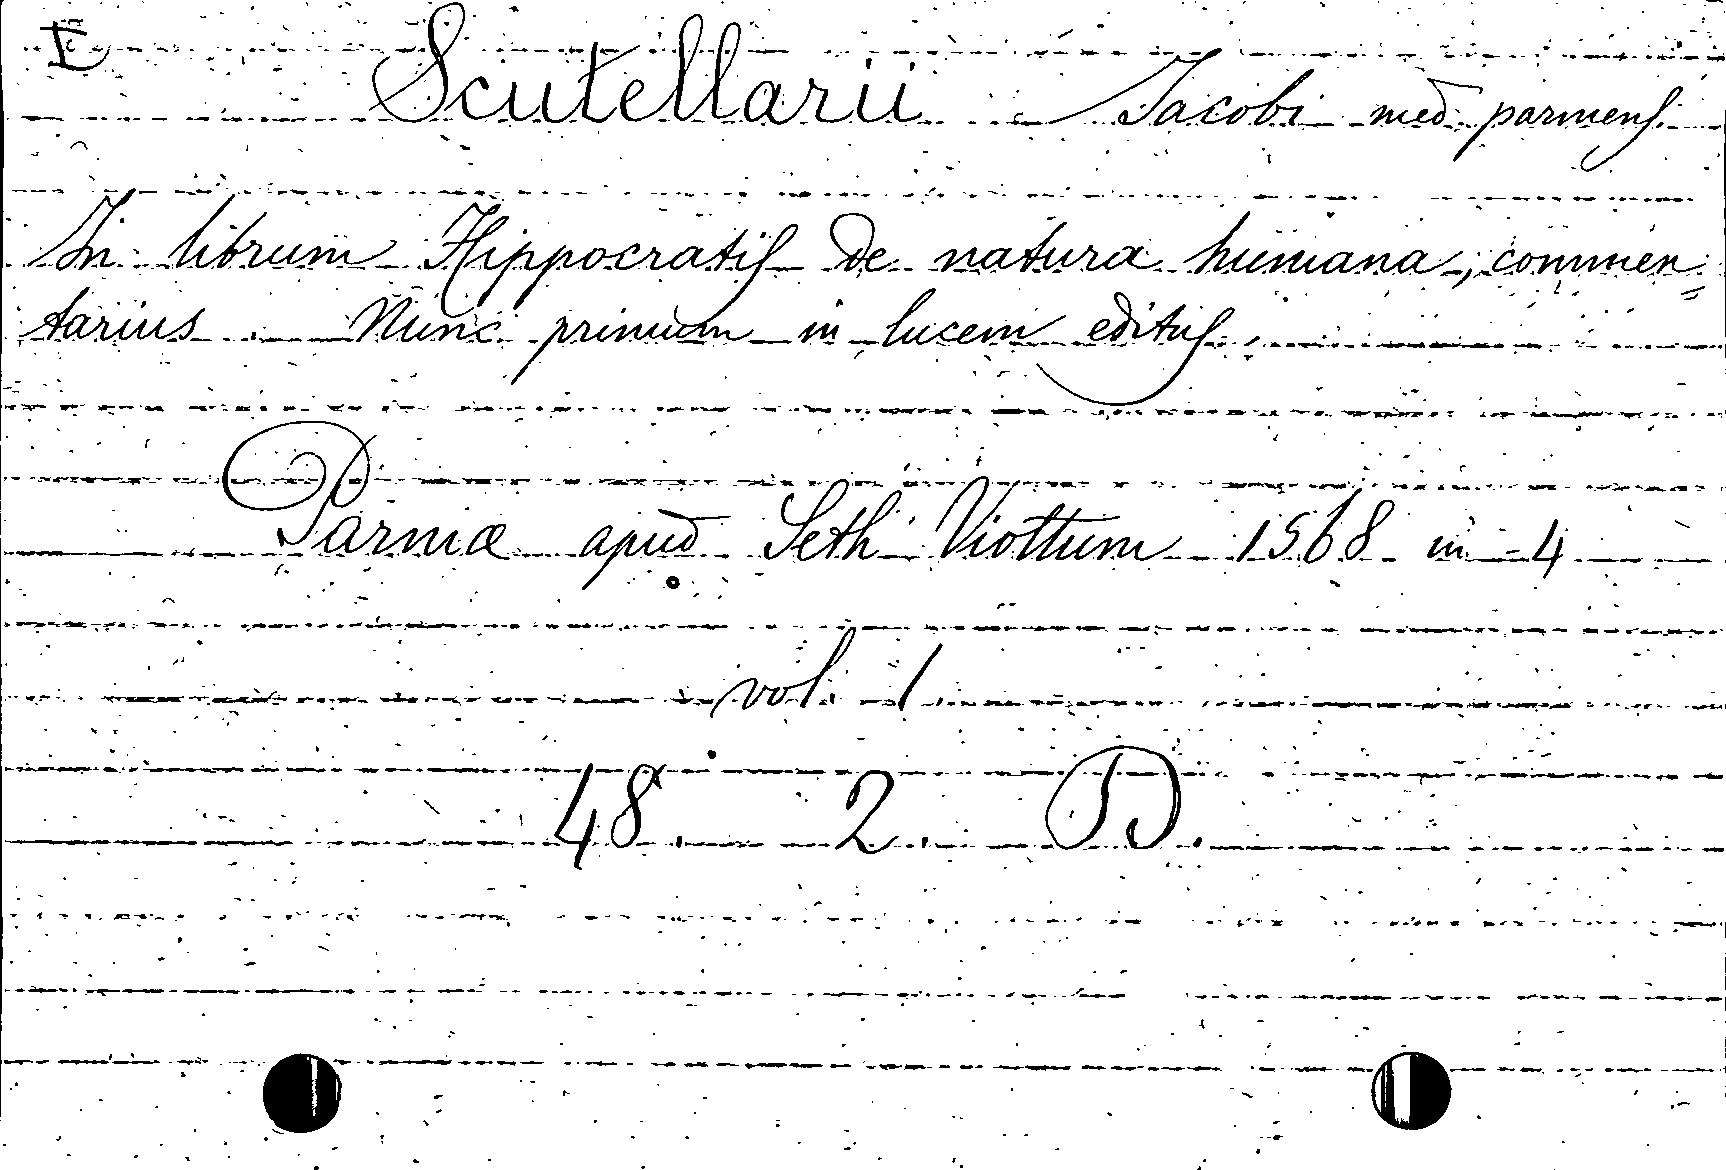 I
Scutellarii Jacobi med parmens.
In librum Hippocratis de natura humana, commen=
tarius. Nunc primum in lucem editus.
Parmæ apud Seth Viottum 1568 in 4°
vol. 1
48. 2. D.